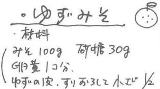 ・ゆずみそ
・材料
みそ100g 砂糖30g
卵黄1コ分、
ゆずの皮、すりおろして小さじ1/2